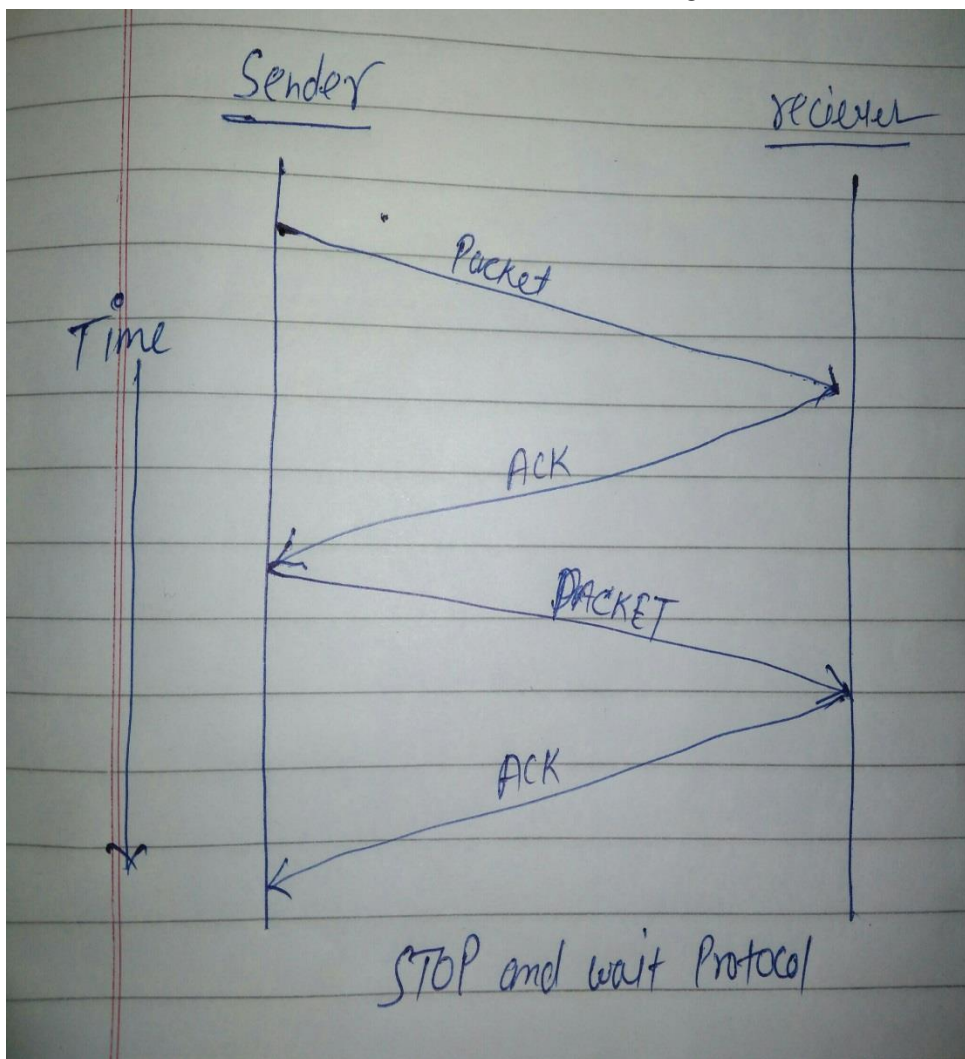 Sender
reciever
Packet
Time
ACK
PACKET
ACK
STOP and wait Protocol